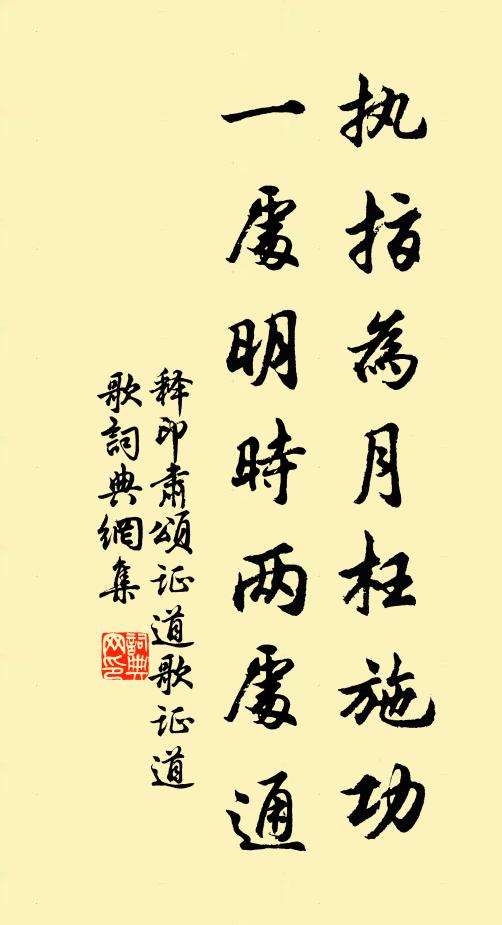 执指為月枉施功
一處明時两處通
释印肃頌证道歌证道
歌詞典網集
詞典网印